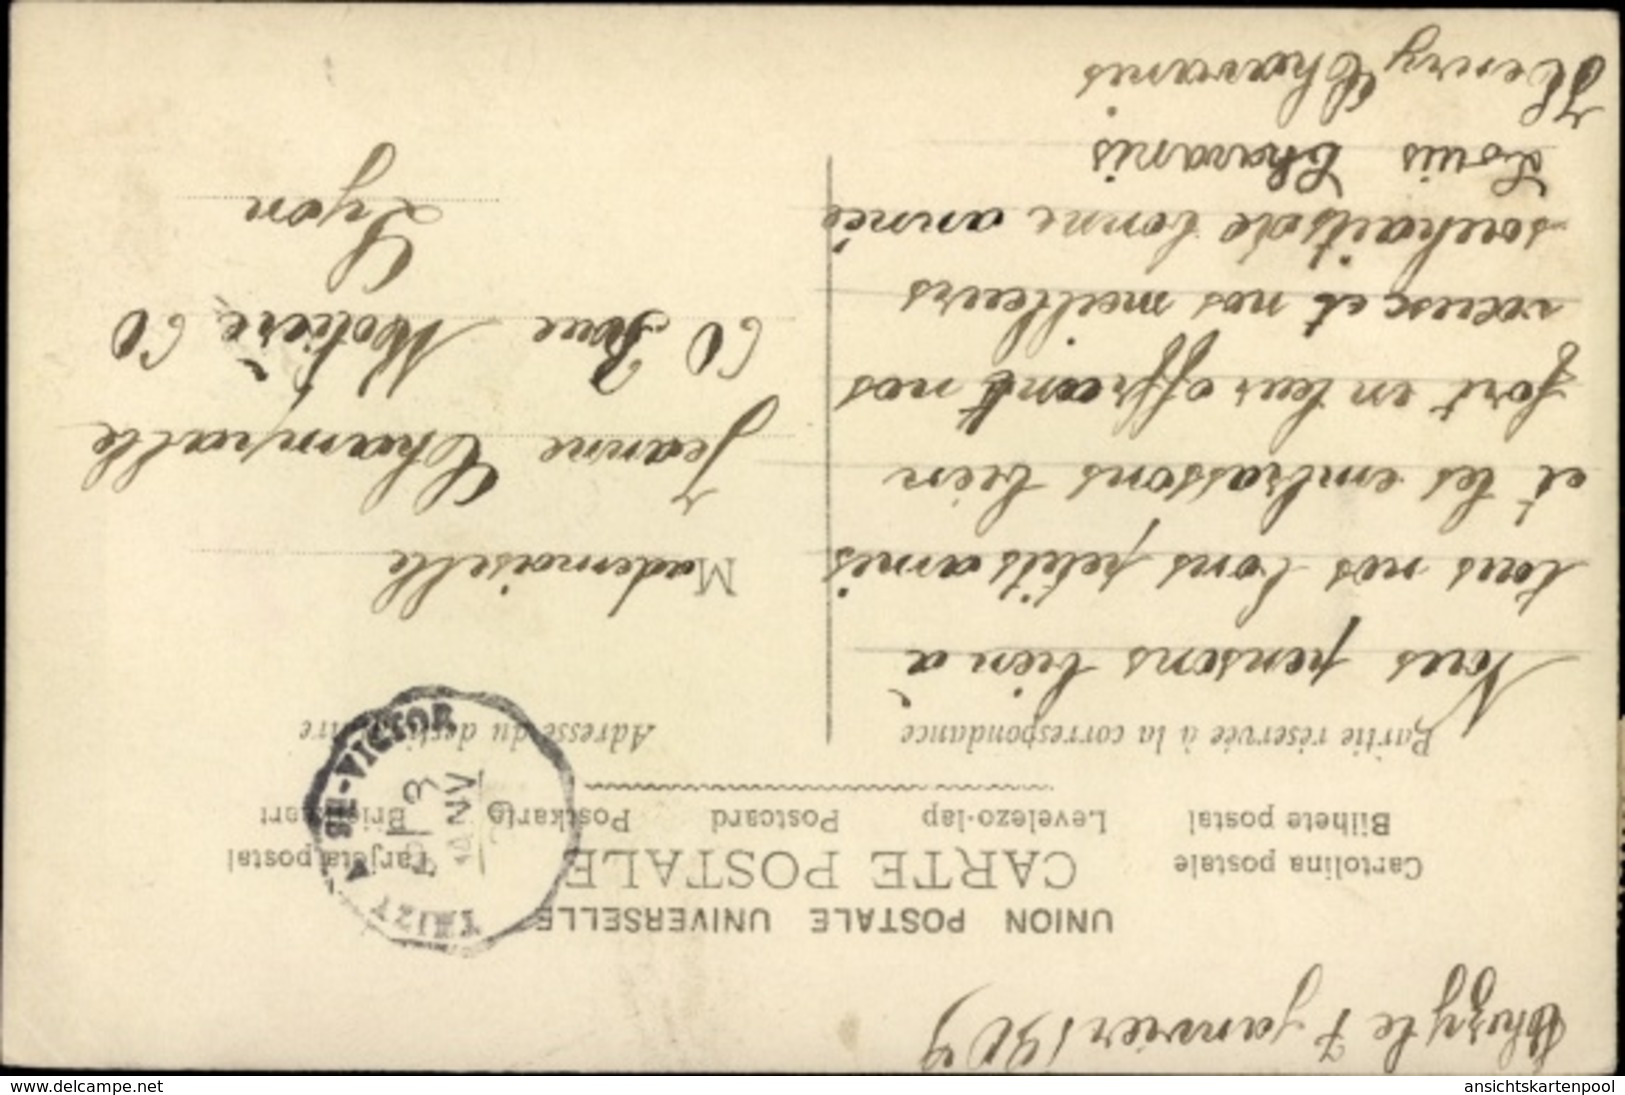 Thizy le 7 janvier 1909
UNION POSTALE UNIVERSELLE
CARTE POSTALE
Cartolina postale
Tarjeta postal
Bilhete postal
Levelezo-lap
Postcard
Postkarte
Partie réservée à la correspondance
Adresse du destinataire
Nous pensons bien à
tous nos bons petits amis
et les embrassons bien
fort en leur offrant nos
vœux et nos meilleurs
souhaits de bonne année
Louis Chavanis
Henry Chavanis
Mademoiselle
Jeanne Champalle
60 Rue Molière 60
Lyon
THIZY A ST-VICTOR
3
JANV
www.delcampe.net
ansichtskartenpool